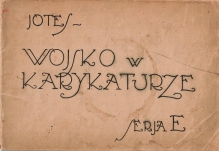 JOTES –
WOJSKO W
KARYKATURZE
SERJA E